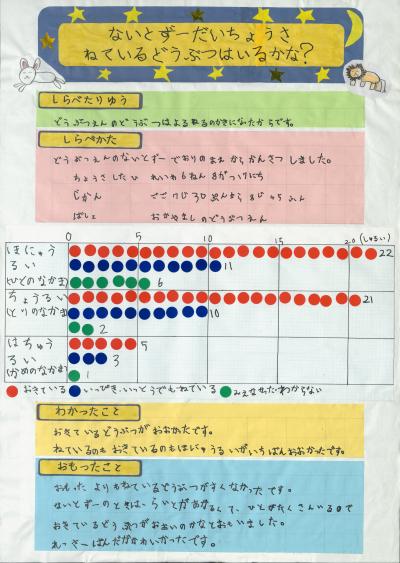 ないとずーだいちょうさ
ねているどうぶつはいるかな?
しらべたりゆう
どうぶつえんのどうぶつはよるねるのかきになったからです。
しらべかた
どうぶつえんのないとずーでおりのまえからかんさつしました。
ちょうさしたひ れいわ6ねん8がつ
じかん ごご 30ぷんから8じ45ふん
ばしょ おかやましのどうぶつえん
0 5 10 15 20(しゅるい)
ほにゅうるい
(ひとのなかま)
22
11
6
ちょうるい
(とりのなかま)
21
10
2
はちゅうるい
(かめのなかま)
5
3
1
おきている いっぴき・いっとうでもねている みえなかった・わからない
わかったこと
おきているどうぶつがおおかたです。
ねているのもおきているのもほにゅうるいがいちばんおおかったです。
おもったこと
おもったよりもねているどうぶつがすくなかったです。
ないとずーのときは、らいとがあかるくて、ひとがたくさんいるので
おきているどうぶつがおおいのかなとおもいました。
れっさーぱんだがかわいかったです。